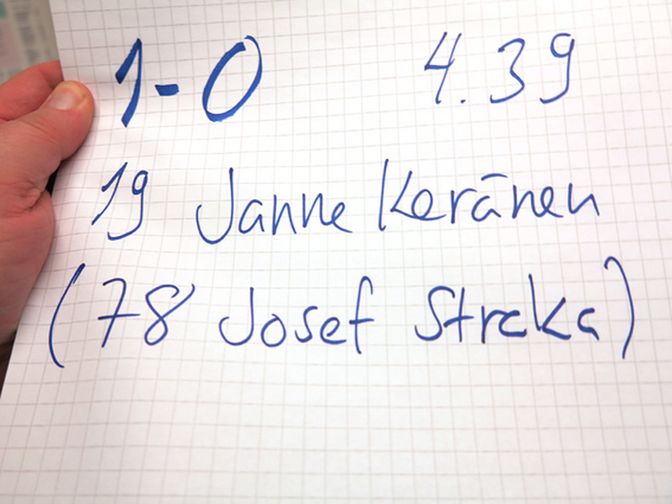 1-0 4.39
19 Janne Keränen
(78 Josef Straka)